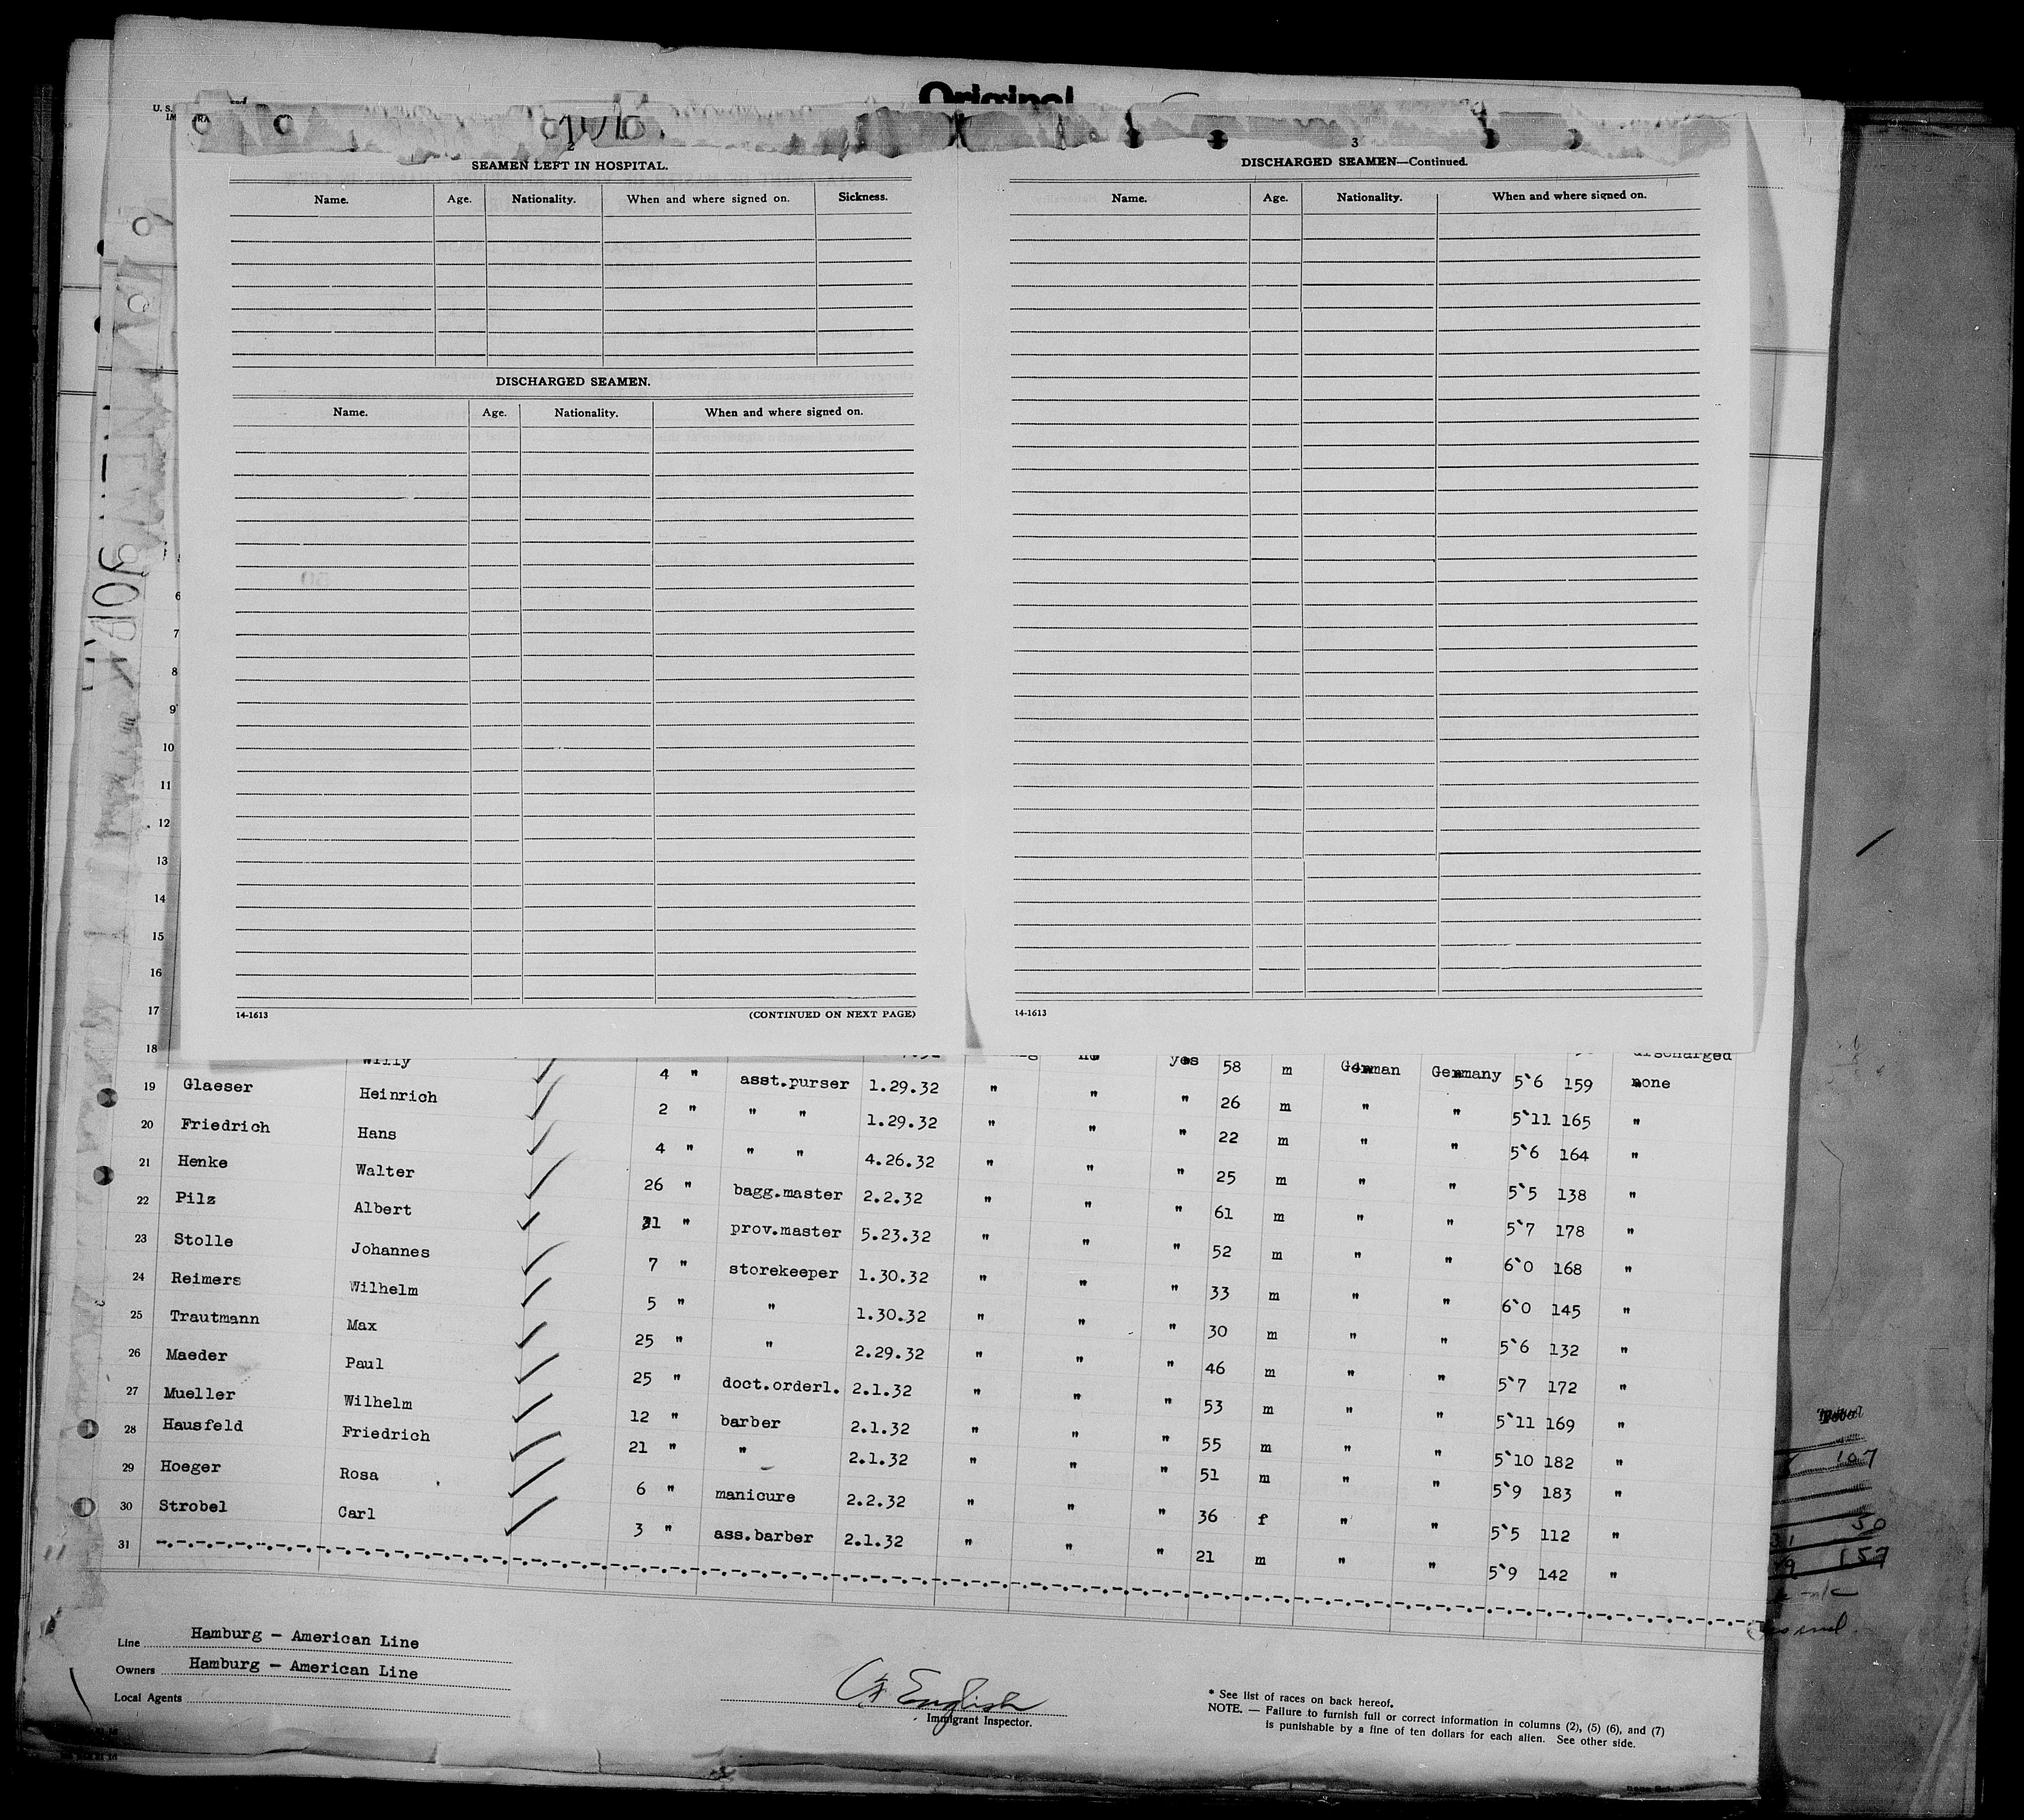 Original
U. S.
2
SEAMEN LEFT IN HOSPITAL.
Name. Age. Nationality. When and where signed on. Sickness.
DISCHARGED SEAMEN.
Name. Age. Nationality. When and where signed on.
14-1613 (CONTINUED ON NEXT PAGE)
3
DISCHARGED SEAMEN—Continued.
Name. Age. Nationality. When and where signed on.
14-1613
6
7
8
9
10
11
12
13
14
15
16
17 yes 58 m German Germany 5'6 159 none
18 Willy 4 " asst.purser 1.29.32 " " " 26 m " " 5'11 165 "
19 Glaeser Heinrich 2 " " " 1.29.32 " " " 22 m " " 5'6 164 "
20 Friedrich Hans 4 " " " 4.26.32 " " " 25 m " " 5'5 138 "
21 Henke Walter 26 " bagg.master 2.2.32 " " " 61 m " " 5'7 178 "
22 Pilz Albert 31 " prov.master 5.23.32 " " " 52 m " " 6'0 168 "
23 Stolle Johannes 7 " storekeeper 1.30.32 " " " 33 m " " 6'0 145 "
24 Reimers Wilhelm 5 " " 1.30.32 " " " 30 m " " 5'6 132 "
25 Trautmann Max 25 " " 2.29.32 " " " 46 m " " 5'7 172 "
26 Maeder Paul 25 " doct.orderl. 2.1.32 " " " 53 m " " 5'11 169 "
27 Mueller Wilhelm 12 " barber 2.1.32 " " " 55 m " " 5'10 182 "
28 Hausfeld Friedrich 21 " " 2.1.32 " " " 51 m " " 5'9 183 "
29 Hoeger Rosa 6 " manicure 2.2.32 " " " 36 f " " 5'5 112 "
30 Strobel Carl 3 " ass.barber 2.1.32 " " " 21 m " " 5'9 142 "
31
107
30
157
Line Hamburg - American Line
Owners Hamburg - American Line
Local Agents
English
Immigrant Inspector.
* See list of races on back hereof.
NOTE. — Failure to furnish full or correct information in columns (2), (5) (6), and (7)
is punishable by a fine of ten dollars for each alien. See other side.